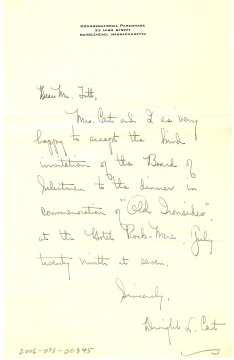 CONGREGATIONAL PARSONAGE
25 HIGH STREET
MARBLEHEAD, MASSACHUSETTS
Dear Mr. Tutt,
Mrs. Cart and I are very
happy to accept the kind
invitation of the Board of
Selectmen to the dinner in
commemoration of "Old Ironsides"
at the Hotel Rock-Mere July
twenty ninth at seven.
Sincerely,
Dwight L. Cart
2006-073-00395